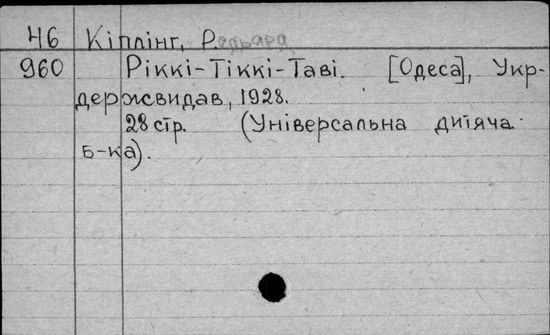 46 Кіплінг, Редьярд
960 Ріккі-Тіккі-Таві. [Одеса], Укр-
держвидав, 1928.
28 стр. (Універсальна дитяча
б-ка).